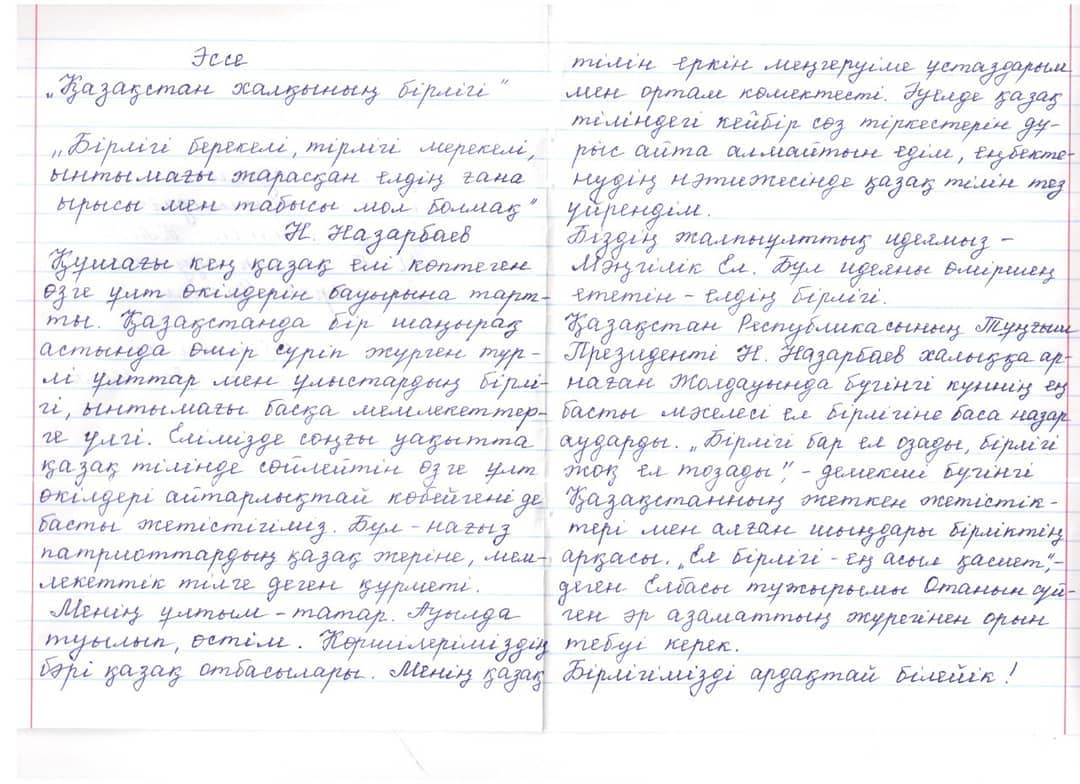 Эссе
„Қазақстан халқының бірлігі"
„Бірлігі берекелі, тірлігі мерекелі,
ынтымағы жарасқан елдің ғана
ырысы мен табысы мол болмақ"
Н. Назарбаев
Құшағы кең қазақ елі көптеген
өзге ұлт өкілдерін бауырына тарт-
ты. Қазақстанда бір шаңырақ
астында өмір сүріп жүрген түр-
лі ұлттар мен ұлыстардың бірлі-
гі, ынтымағы басқа мемлекеттер-
ге үлгі. Елімізде соңғы уақытта
қазақ тілінде сөйлейтін өзге ұлт
өкілдері айтарлықтай көбейгені де
басты жетістігіміз. Бұл - нағыз
патриоттардың қазақ жеріне, мем-
лекеттік тілге деген құрметі.
Менің ұлтым - татар. Ауылда
туылып, өстім. Көршілеріміздің
бәрі қазақ отбасылары. Менің қазақ
тілін еркін меңгеруіме ұстаздарым
мен ортам көмектесті. Әуелде қазақ
тіліндегі кейбір сөз тіркестерін дұ-
рыс айта алмайтын едім, еңбекте-
нудің нәтижесінде қазақ тілін тез
үйрендім.
Біздің жалпыұлттық идеямыз -
Мәңгілік Ел. Бұл идеяны өміршең
ететін - елдің бірлігі.
Қазақстан Республикасының Тұңғыш
Президенті Н. Назарбаев халыққа ар-
наған Жолдауында бүгінгі күннің ең
басты мәселесі ел бірлігіне баса назар
аударды. „Бірлігі бар ел озады, бірлігі
жоқ ел тозады", - демекші бүгінгі
Қазақстанның жеткен жетістік-
тері мен алған шыңдары бірліктің
арқасы. „Ел бірлігі - ең асыл қасиет", -
деген Елбасы тұжырымы Отанын сүй-
ген әр азаматтың жүрегінен орын
тебуі керек.
Бірлігімізді ардақтай білейік!